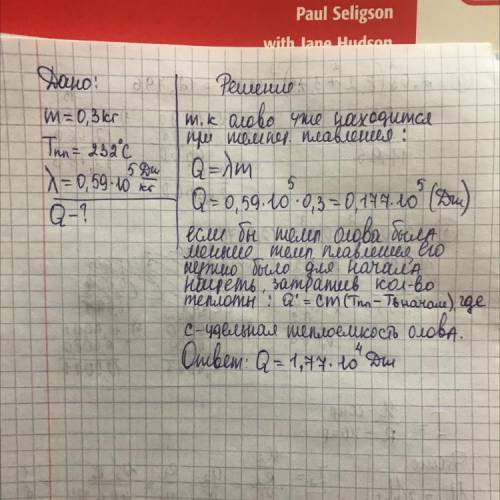 Paul Seligson
with Jane Hudson
Дано:
m = 0,3 кг
Tпл = 232°C
λ = 0,59·10⁵ Дж/кг
Q - ?
Решение:
т.к олово уже находится
при темпер. плавления:
Q = λm
Q = 0,59·10⁵·0,3 = 0,177·10⁵ (Дж)
если бы темп. олова была
меньше темп плавления его
нужно было для начала
нагреть, затратив кол-во
теплоты: Q' = cm(Tпл - Tвначале), где
с - удельная теплоемкость олова.
Ответ: Q = 1,77·10⁴ Дж